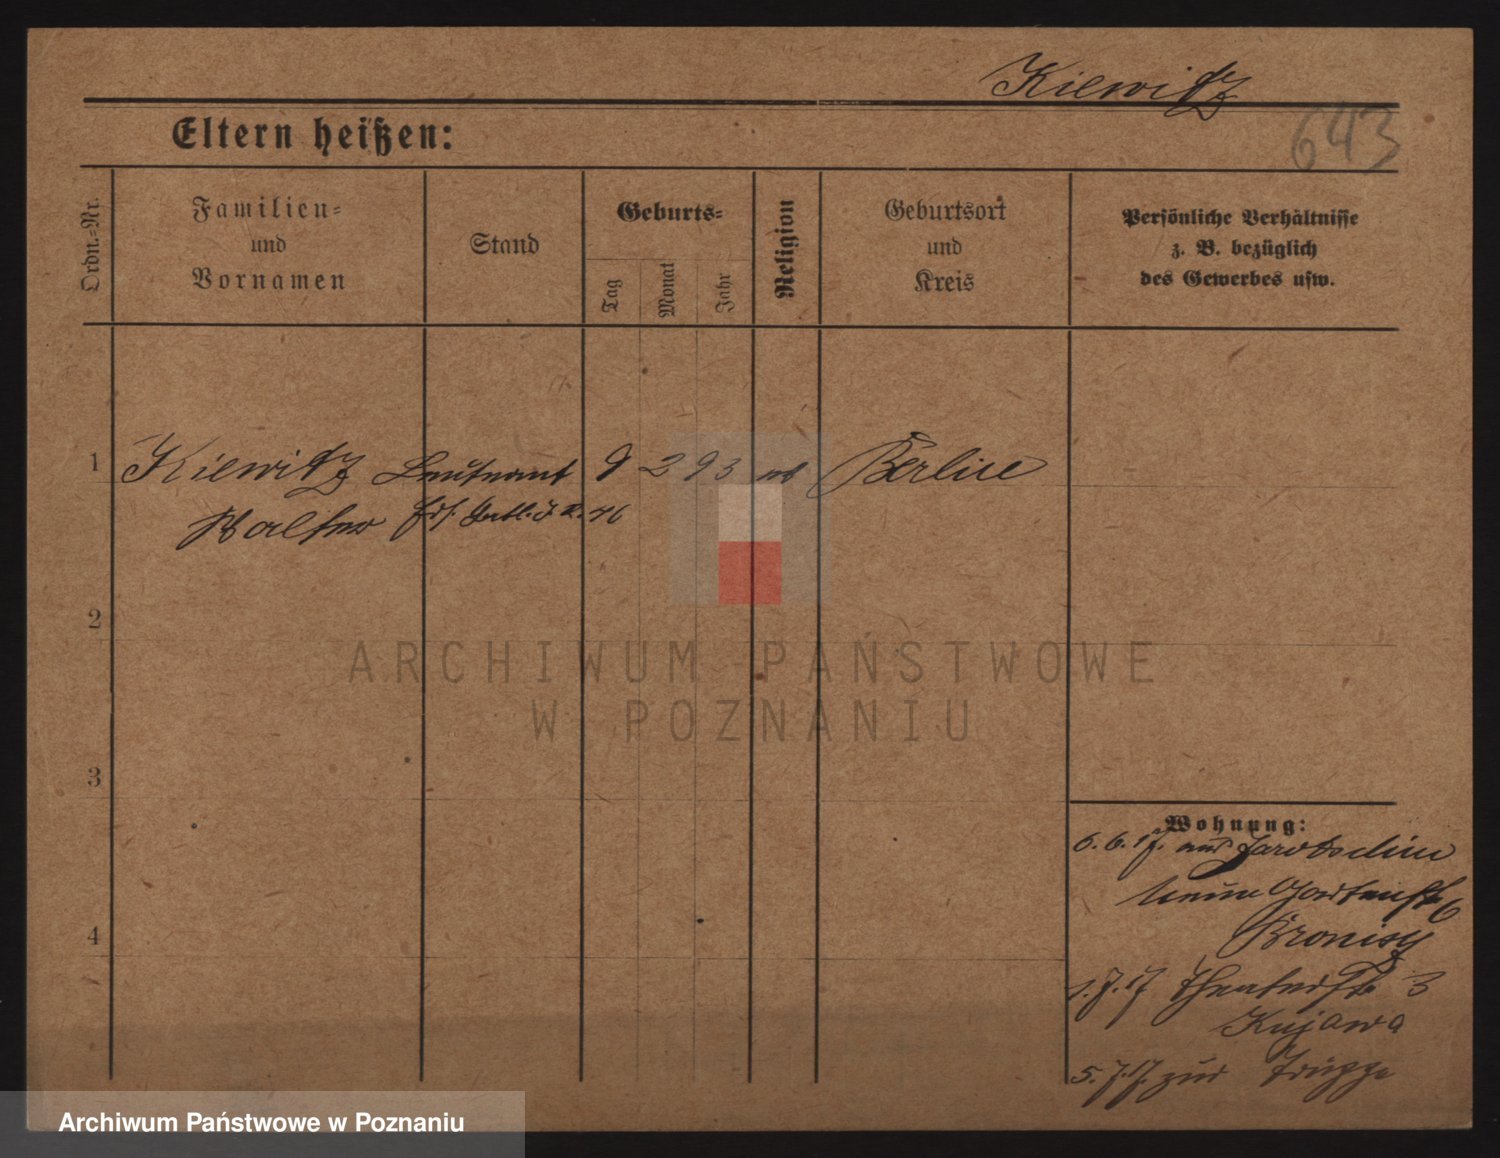 Kiewitz
643
Eltern heißen:
Ordn.=Nr.
Familien=
und
Vornamen
Stand
Geburts=
Tag
Monat
Jahr
Religion
Geburtsort
und
Kreis
Persönliche Verhältnisse
z. B. bezüglich
des Gewerbes usw.
1 Kiewitz Leutnant 9 2 93 ev Berlin
Walter Ers. Batl. J. R. 46
2
3
4
Wohnung:
6. 6. 17. aus Jarotschin
Gartenstr 6
Bronisz
1. 7. 17 Theaterstr 3
Kujawa
5. 7. 17. zur Truppe
ARCHIWUM PAŃSTWOWE
W POZNANIU
Archiwum Państwowe w Poznaniu